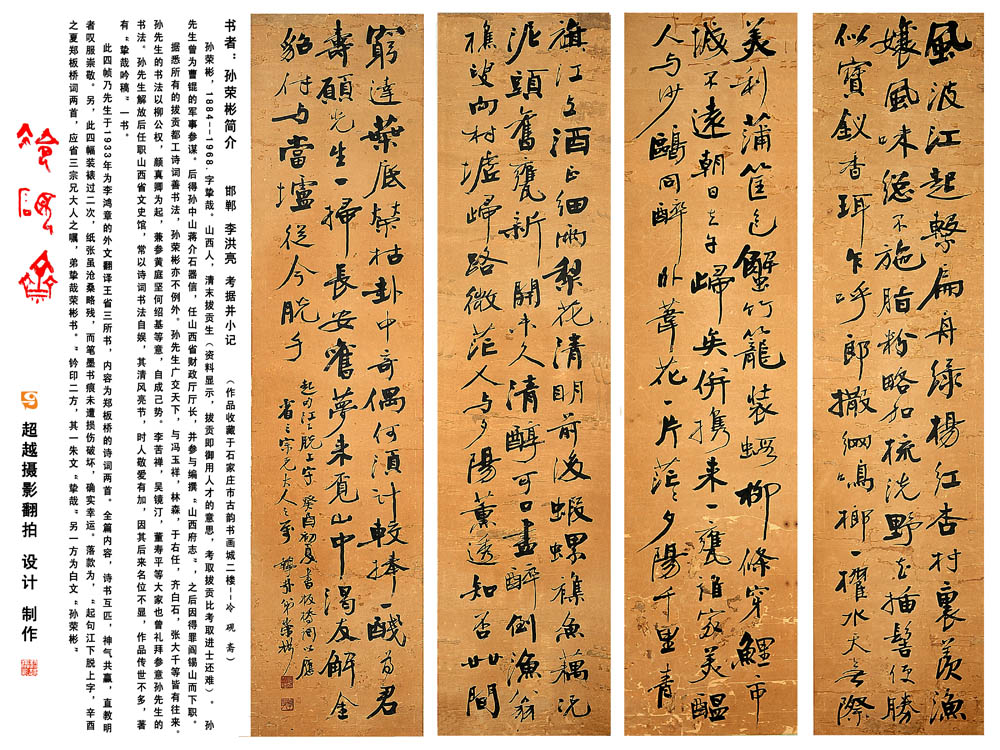 風波江起繫扁舟綠楊紅杏村裏羨漁
孃風味總不施脂粉略加梳洗野花插髻便勝
似寶釵香珥乍呼郎撒網鳴榔一櫂水天無際
美利蒲筐包蟹竹籠裝蝦柳條穿鯉市
城不遠朝日去午歸矣併攜來一甕誰家美醞
人与沙鷗同醉卧葦花一片茫〻夕陽千里青
旗江上酒正細雨梨花清明前後蝦螺雜魚藕
泥頭舊甕新開未久清醇可口盡醉倒漁翁
樵叟向村墟歸路微茫人与夕陽薰透知否世間
窮達葉底榮枯卦中奇偶何須計較捧一醆為君
壽願先生一掃長安舊夢來覓山中友解金
貂付与當壚從今脫手
起句江上脫上字 癸酉初夏書板橋詞以應
省三宗兄大人之 弟榮彬
书者：孙荣彬简介 邯郸 李洪亮 考据并小记 （作品收藏于石家庄市古韵书画城二楼--冷砚斋）
孙荣彬，1884--1968.字挚哉。山西人，清末拔贡生（资料显示，拔贡即御用人才的意思，考取拔贡比考取进士还难）。孙
先生曾为曹锟的军事参谋。后得孙中山蒋介石器信，任山西省财政厅厅长，并参与编撰“山西府志”，之后因得罪阎锡山而下职。
据悉所有的拔贡都工诗词善书法，孙荣彬亦不例外。孙先生广交天下，与冯玉祥，林森，于右任，齐白石，张大千等皆有往来。
孙先生的书法以柳公权，颜真卿为起，兼参黄庭坚何绍基等意，自成己势。李苦禅，吴镜汀，董寿平等大家也曾礼拜参意孙先生的
书法。孙先生解放后任职山西省文史馆，常以诗词书法自娱，其清风亮节，时人敬爱有加，因其后来名位不显，作品传世不多，著
有“挚哉吟稿”一书。
此四帧乃先生于1933年为李鸿章的外文翻译王省三所书，内容为郑板桥的诗词两首。全篇内容，诗书互匹，神气共赢，直教明
者叹服崇敬。另，此四幅装裱过二次，纸张虽沧桑略残，而笔墨书痕未遭损伤破坏，确实幸运。落款为，“起句江下脱上字，辛酉
之夏郑板桥词两首，应省三宗兄大人之嘱，弟挚哉荣彬书。”钤印二方，其一朱文“挚哉”另一方为白文“孙荣彬”
冷砚斋
超越摄影翻拍 设计 制作